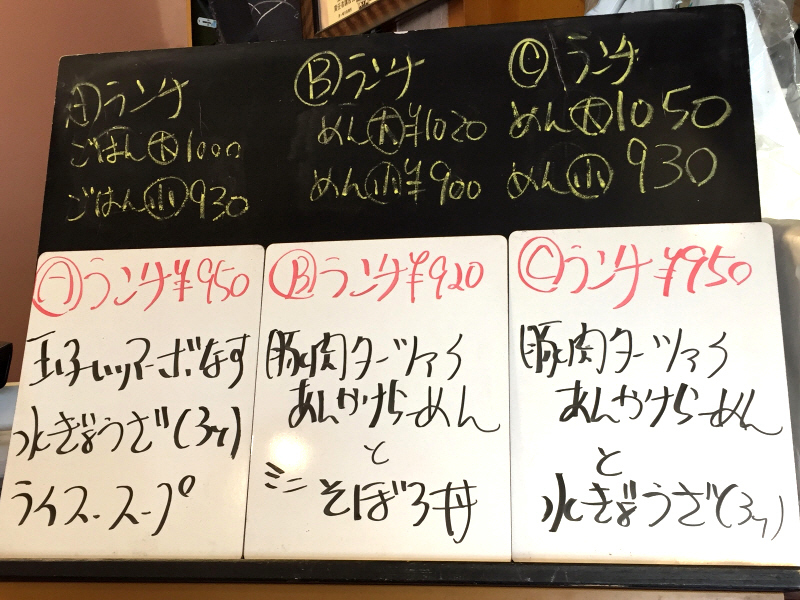 Ⓐランチ
ごはん㊛大1000
ごはん小930
Ⓑランチ
めん大¥1020
めん小¥900
Ⓒランチ
めん大1050
めん小930
Ⓐランチ¥950
玉子入りマーボなす
水ぎょうざ(3ケ)
ライス・スープ
Ⓑランチ¥920
豚肉ターツァイ
あんかけらーめん
と
ミニそぼろ丼
Ⓒランチ¥950
豚肉ターツァイ
あんかけらーめん
と
水ぎょうざ(3ケ)